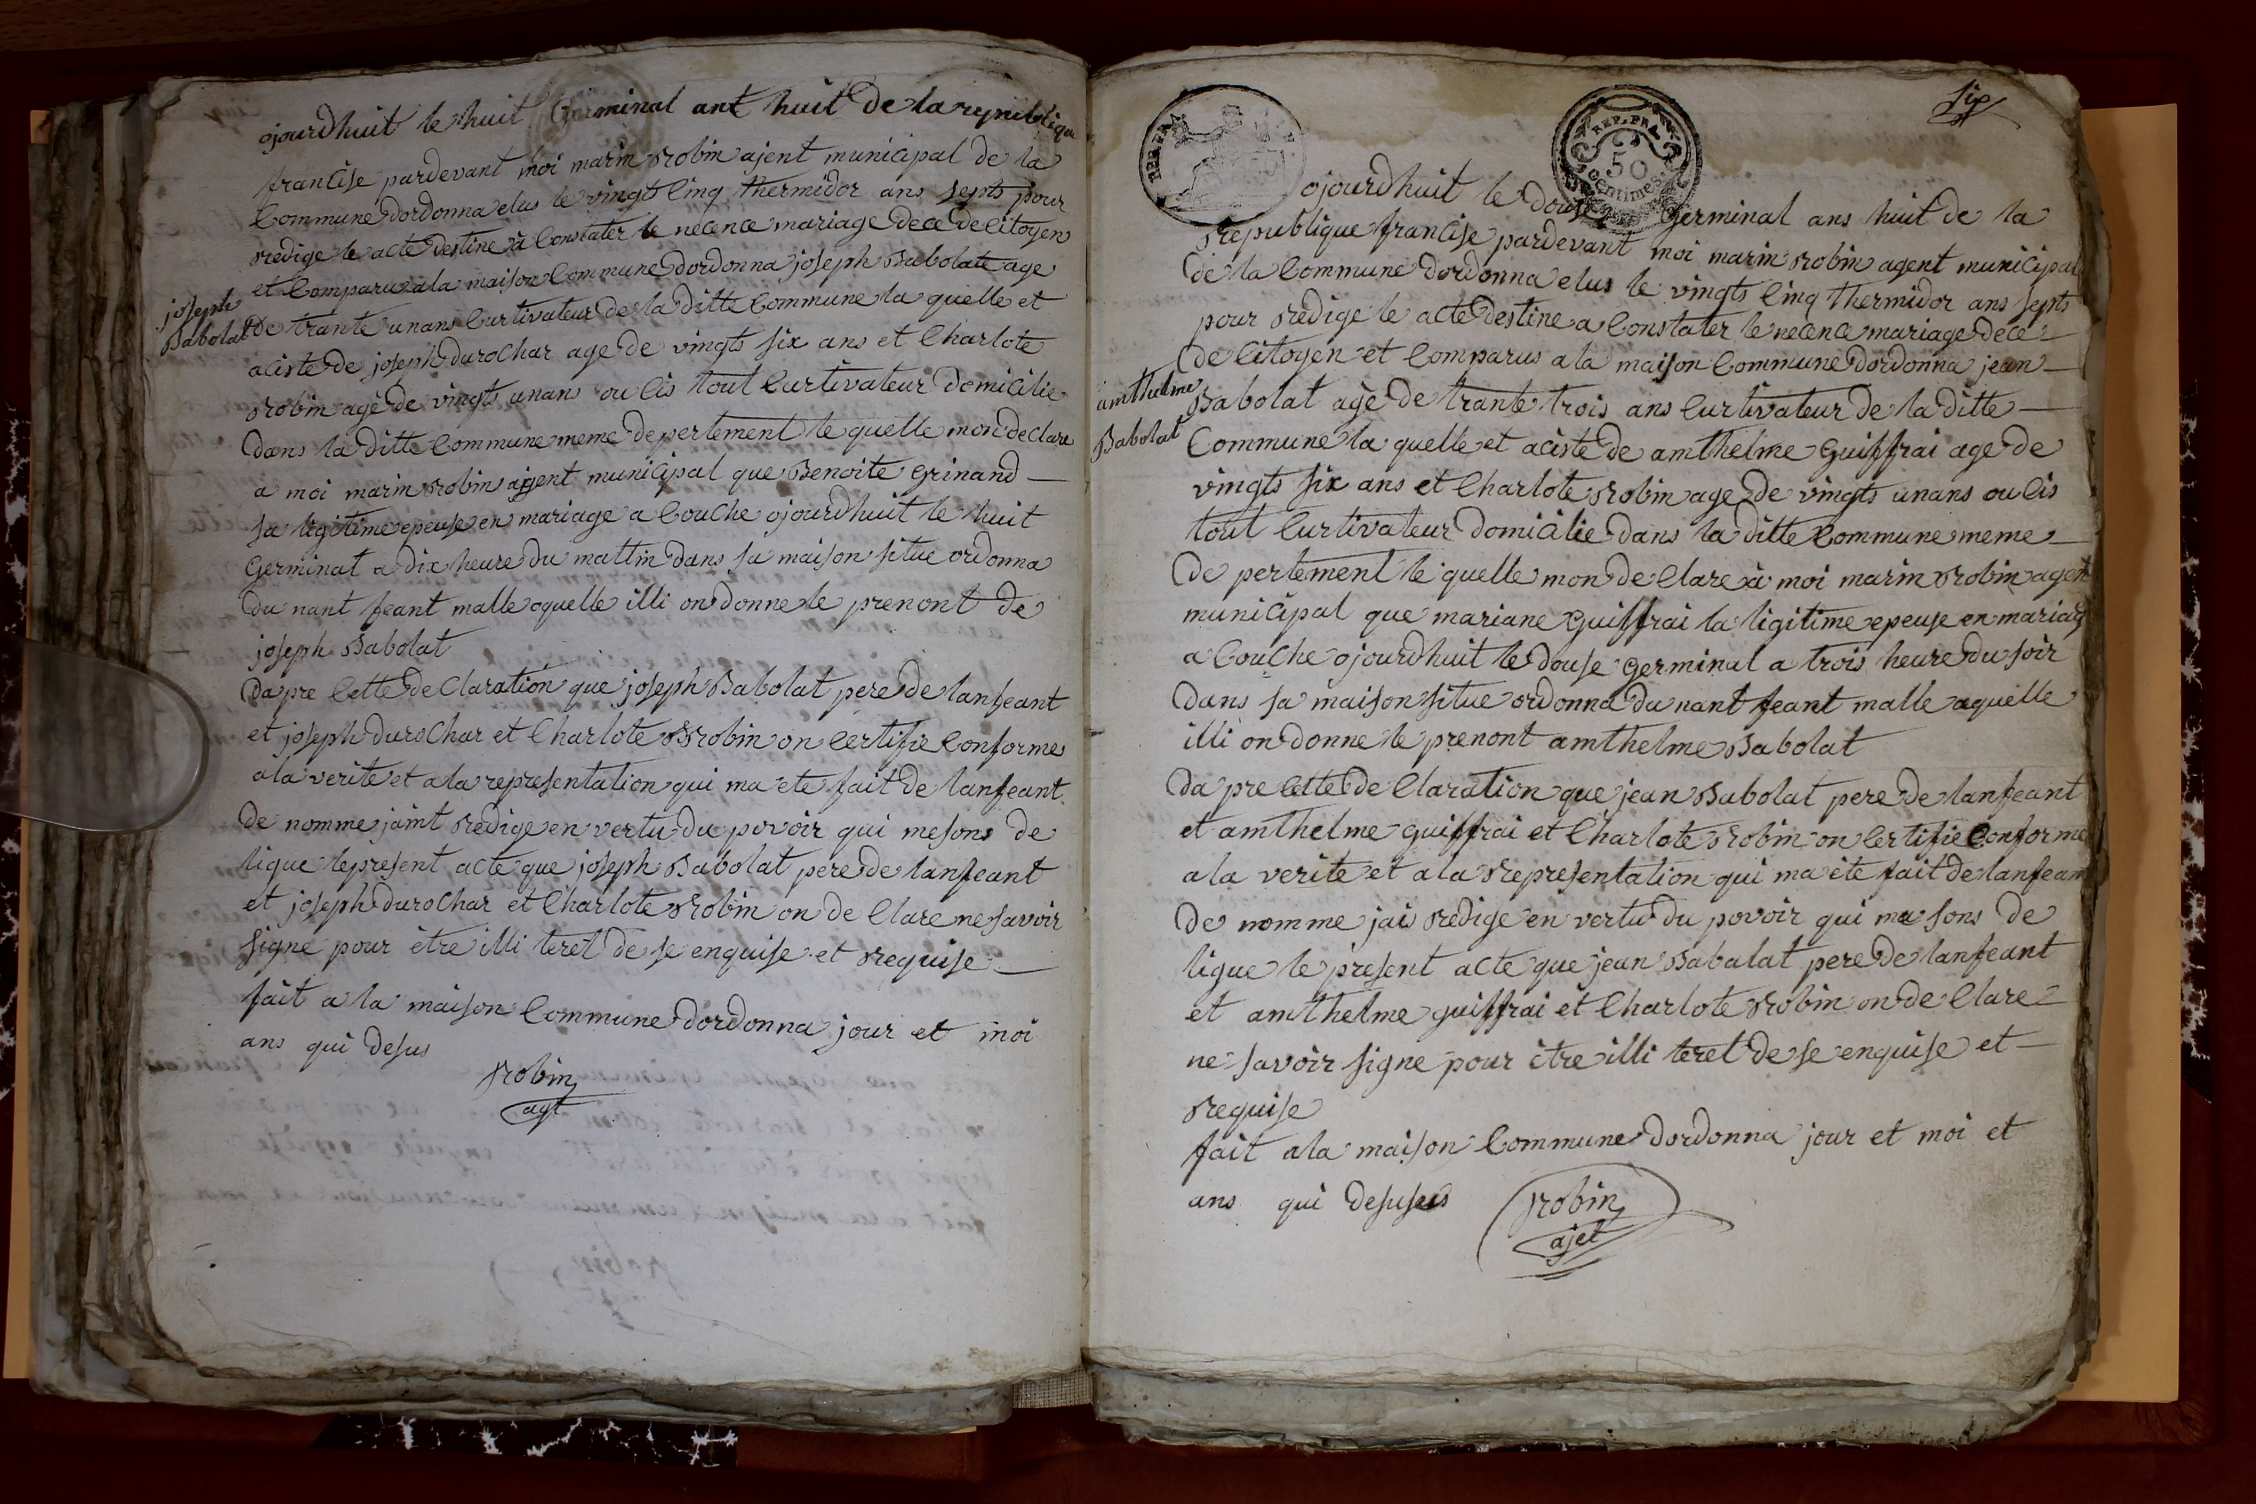 ojourdhuit le huit Germinal ant huit de la repuiblique
francise pardevant moi marin robin ajent municipal de la
Commune dordonna elus le vingts cinq thermidor ans septs pour
redige le acte destine à Constater le necence mariage dece de Citoyen
et Comparu a la maison Commune dordonna joseph Babolat age
joseph
Babolat
de trante unans Curtivateur de la ditte Commune la quelle et
aciste de joseph durochar age de vingts six ans et Charlote
robin age de vingts unans ou cis tout Curtivateur domicilie
dans la ditte Commune meme depertement le quelle mon declare
a moi marin robin agent municipal que Benoite Grinand
sa legitime epeuse en mariage a Couche ojourdhuit le huit
Germinal a dix heure du mattin dans sa maison situe ordonna
du nant feant malle aquelle illi on donne le prenont de
joseph Babolat
da pre Cette de Claration que joseph Babolat pere de lanfeant
et joseph durochar et Charlote robin on Certifie Conforme
a la verite et a la representation qui ma ete fait de lanfeant
de nomme jaint redige en vertu du povoir qui mesons de
ligue le present acte que joseph Babolat pere de lanfeant
et joseph durochar et Charlote robin on de Clare ne savoir
signe pour être illi teret de se enquise et requise
fait a la maison Commune dordonna jour et moi
ans qui desus
robin
agt
six
REP. FRA.
REP. FRA.
50
centimes.
ojourdhuit le douse Germinal ans huit de la
republique francise pardevant moi marin robin agent municipal
de la Commune dordonna elus le vingts Cinq thermidor ans septs
pour redige le acte destine a Constater le necence mariage dece
de Citoyen et Comparus a la maison Commune dordonna jean
amthelme
Babolat
Babolat age de trante trois ans Curtivateur de la ditte
Commune la quelle et aciste de amthelme Guiffrai age de
vingts six ans et Charlote robin age de vingts unans ou cis
tout Curtivateur domicilie dans la ditte Commune meme
de pertement le quelle mon de Clare à moi marin robin agent
municipal que mariane Guiffrai la ligitime epeuse en mariag
a Couche ojourdhuit le douse Germinal a trois heure du soir
dans sa maison situe ordonna du nant feant malle aquelle
illi on donne le prenont amthelme Babolat
da pre Cette de Claration que jean Babolat pere de lanfeant
et amthelme guiffrai et Charlote robin on Certifie Conforme
a la verite et a la representation qui ma ete fait de lanfean
de nomme jais redige en vertu du povoir qui me sons de
ligue le present acte que jean Babalat pere de lanfeant
et amthelme guiffrai et Charlote robin on de Clare
ne savoir signe pour être illi teret de se enquise et
requise
fait a la maison Commune dordonna jour et moi et
ans qui desus
robin
ajet